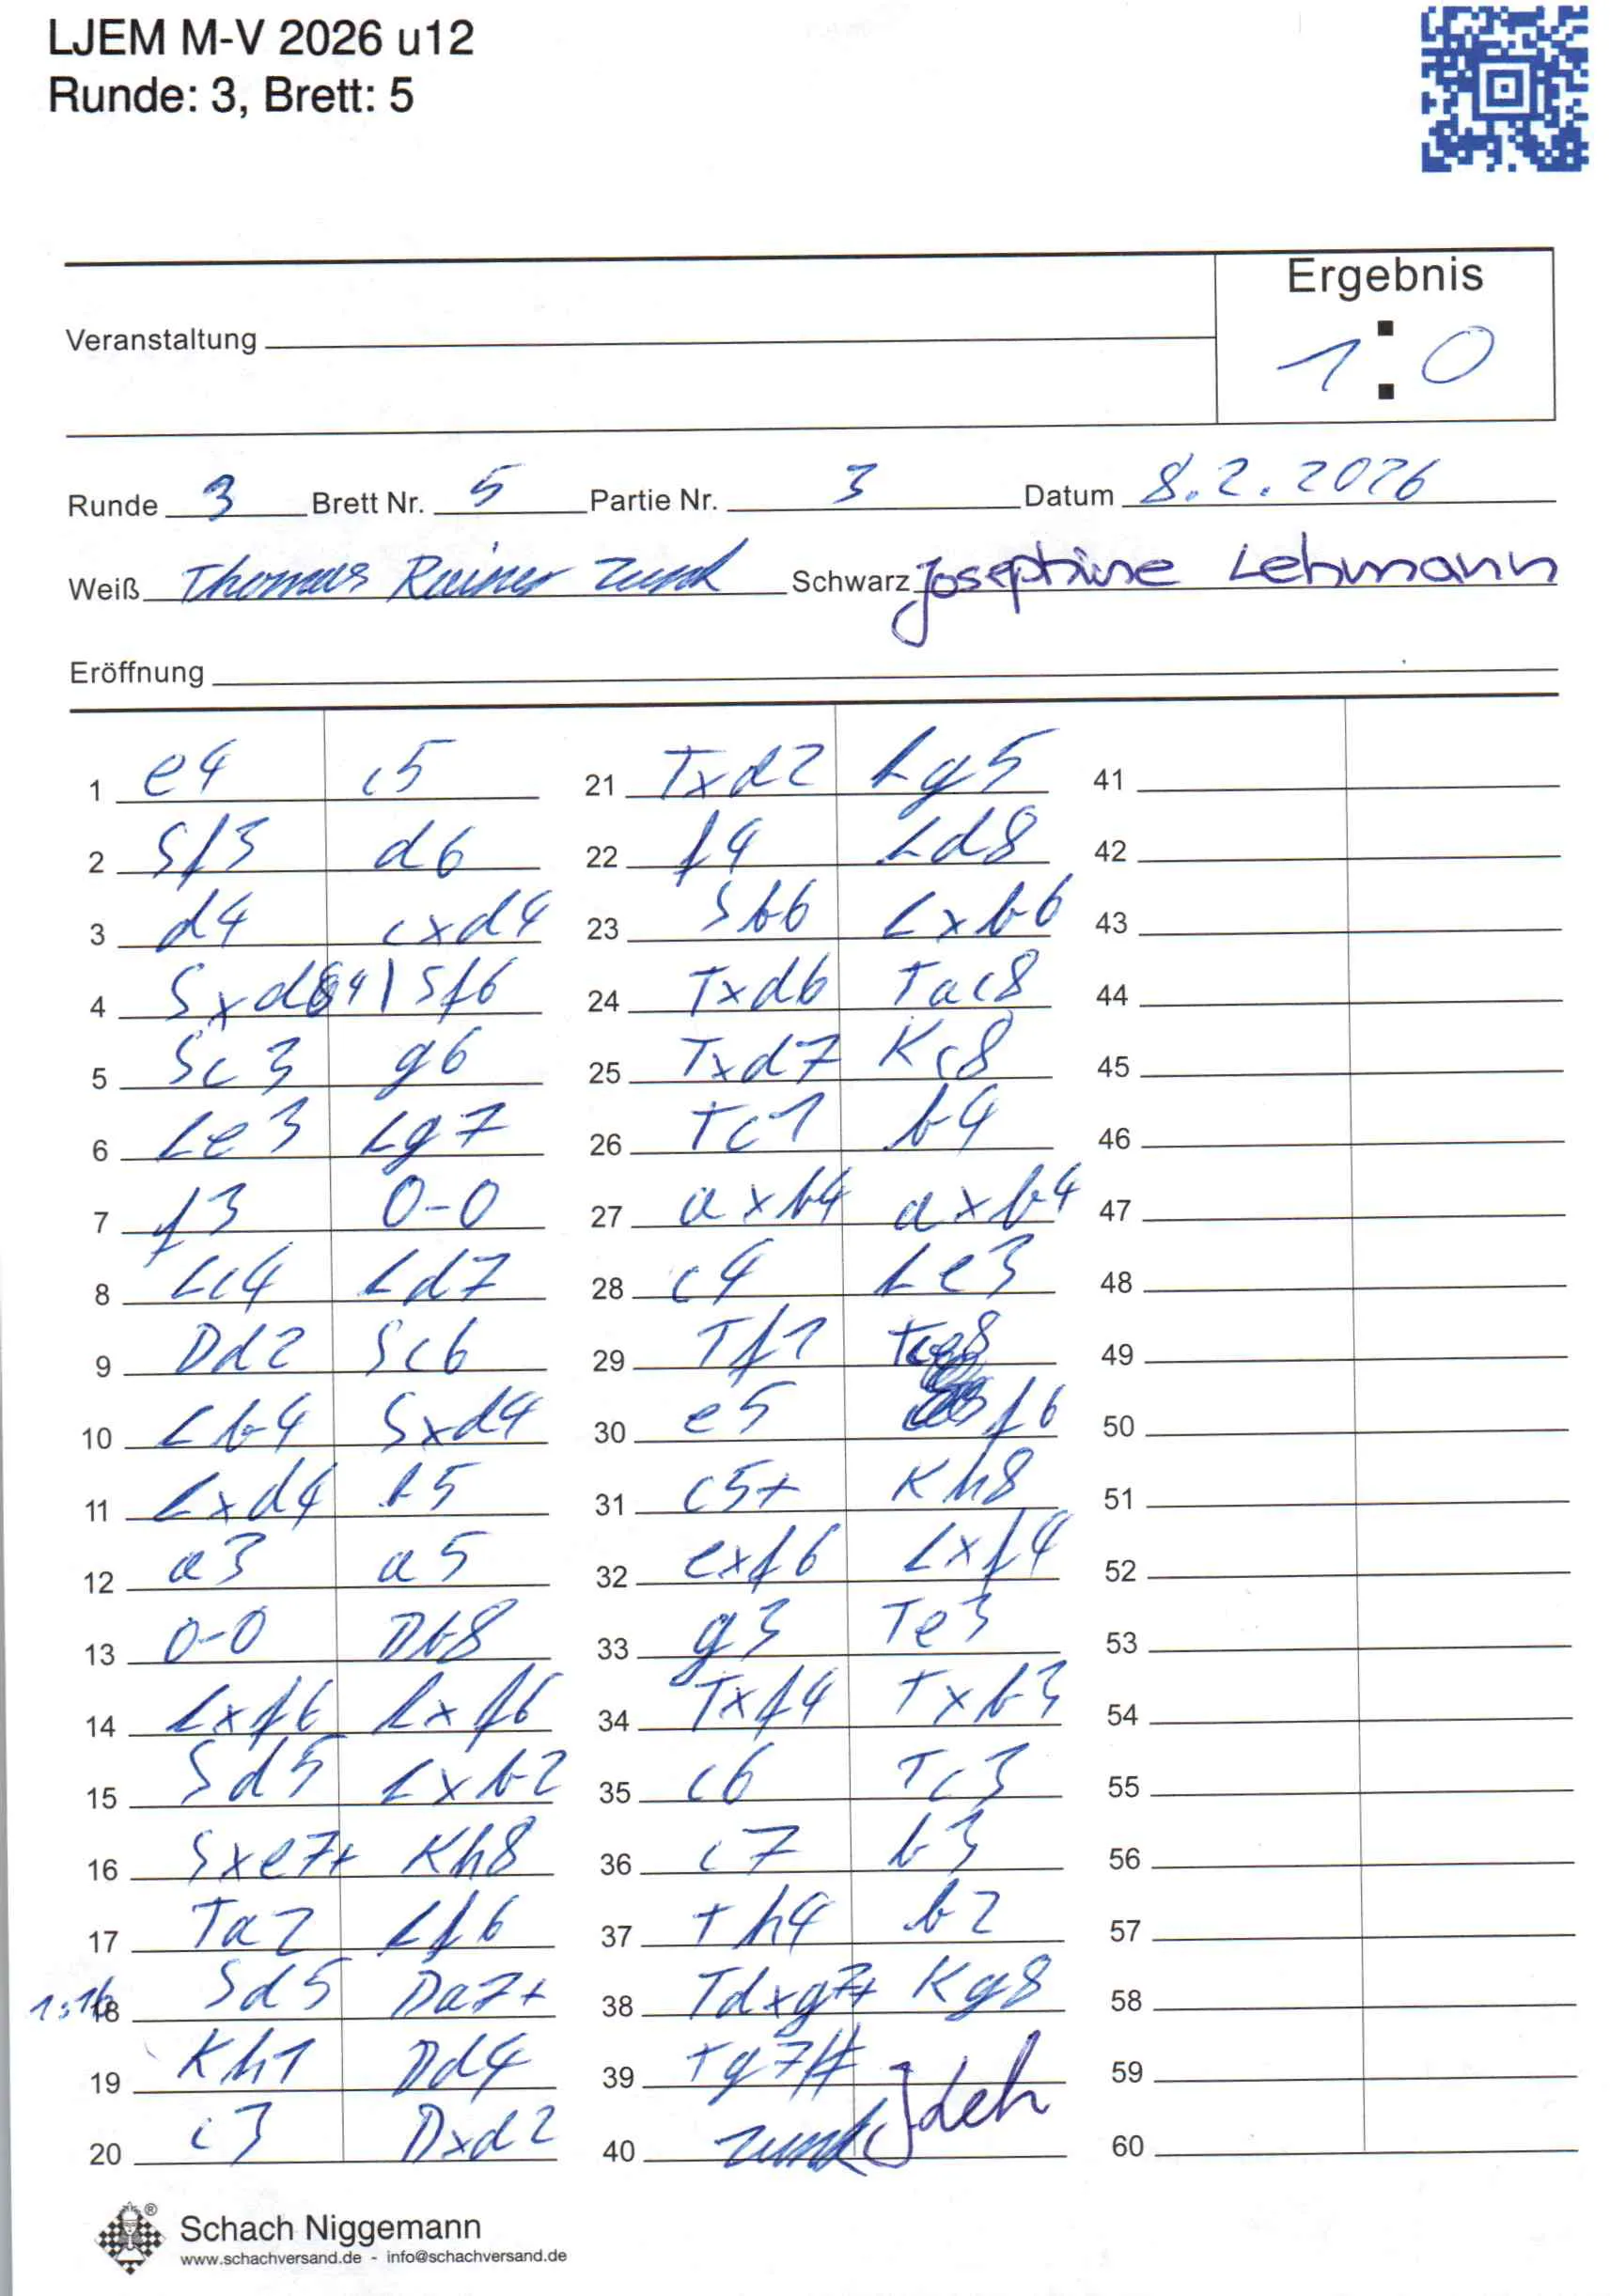 LJEM M-V 2026 u12
Runde: 3, Brett: 5
Ergebnis
Veranstaltung
1 : 0
Runde 3 Brett Nr. 5 Partie Nr. 3 Datum 8.2.2026
Weiß Thomas Rainer Zunk Schwarz Josephine Lehmann
Eröffnung
1 e4 c5 21 Txd2 Lg5 41
2 Sf3 d6 22 f4 Ld8 42
3 d4 cxd4 23 Sb6 Lxb6 43
4 Sxd4 | Sf6 24 Txd6 Tac8 44
5 Sc3 g6 25 Txd7 Kc8 45
6 Le3 Lg7 26 Tc1 b4 46
7 f3 0-0 27 axb4 axb4 47
8 Lc4 Ld7 28 c4 Le3 48
9 Dd2 Sc6 29 Tf1 Tce8 49
10 Lb4 Sxd4 30 e5 f6 50
11 Lxd4 b5 31 c5+ Kh8 51
12 a3 a5 32 exf6 Lxf4 52
13 0-0 Db8 33 g3 Te3 53
14 Lxf6 Lxf6 34 Txf4 Txb3 54
15 Sd5 Lxb2 35 c6 Tc3 55
16 Sxe7+ Kh8 36 c7 b3 56
17 Ta2 Lf6 37 Th4 b2 57
1:16 18 Sd5 Da7+ 38 Tdxg7+ Kg8 58
19 Kh1 Dd4 39 Tg7# 59
20 c3 Dxd2 40 Zunk JLeh 60
® Schach Niggemann
www.schachversand.de - info@schachversand.de